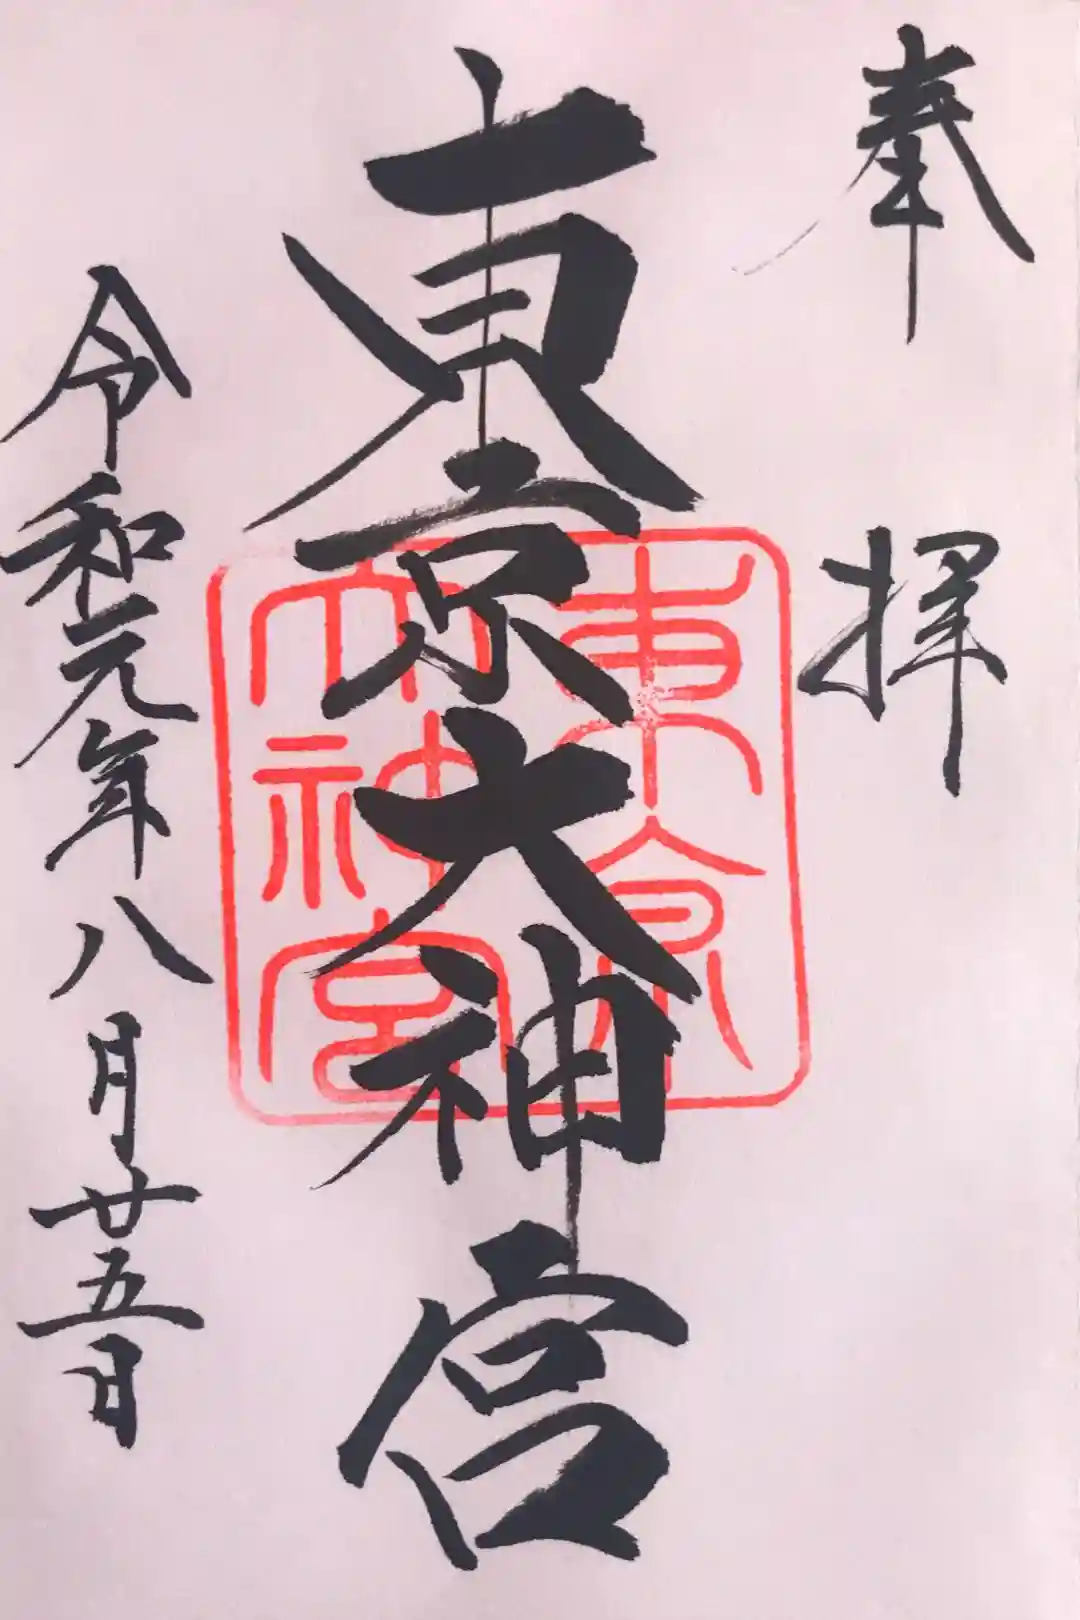 奉拝
東京大神宮
東京
大神宮
令和元年八月廿五日